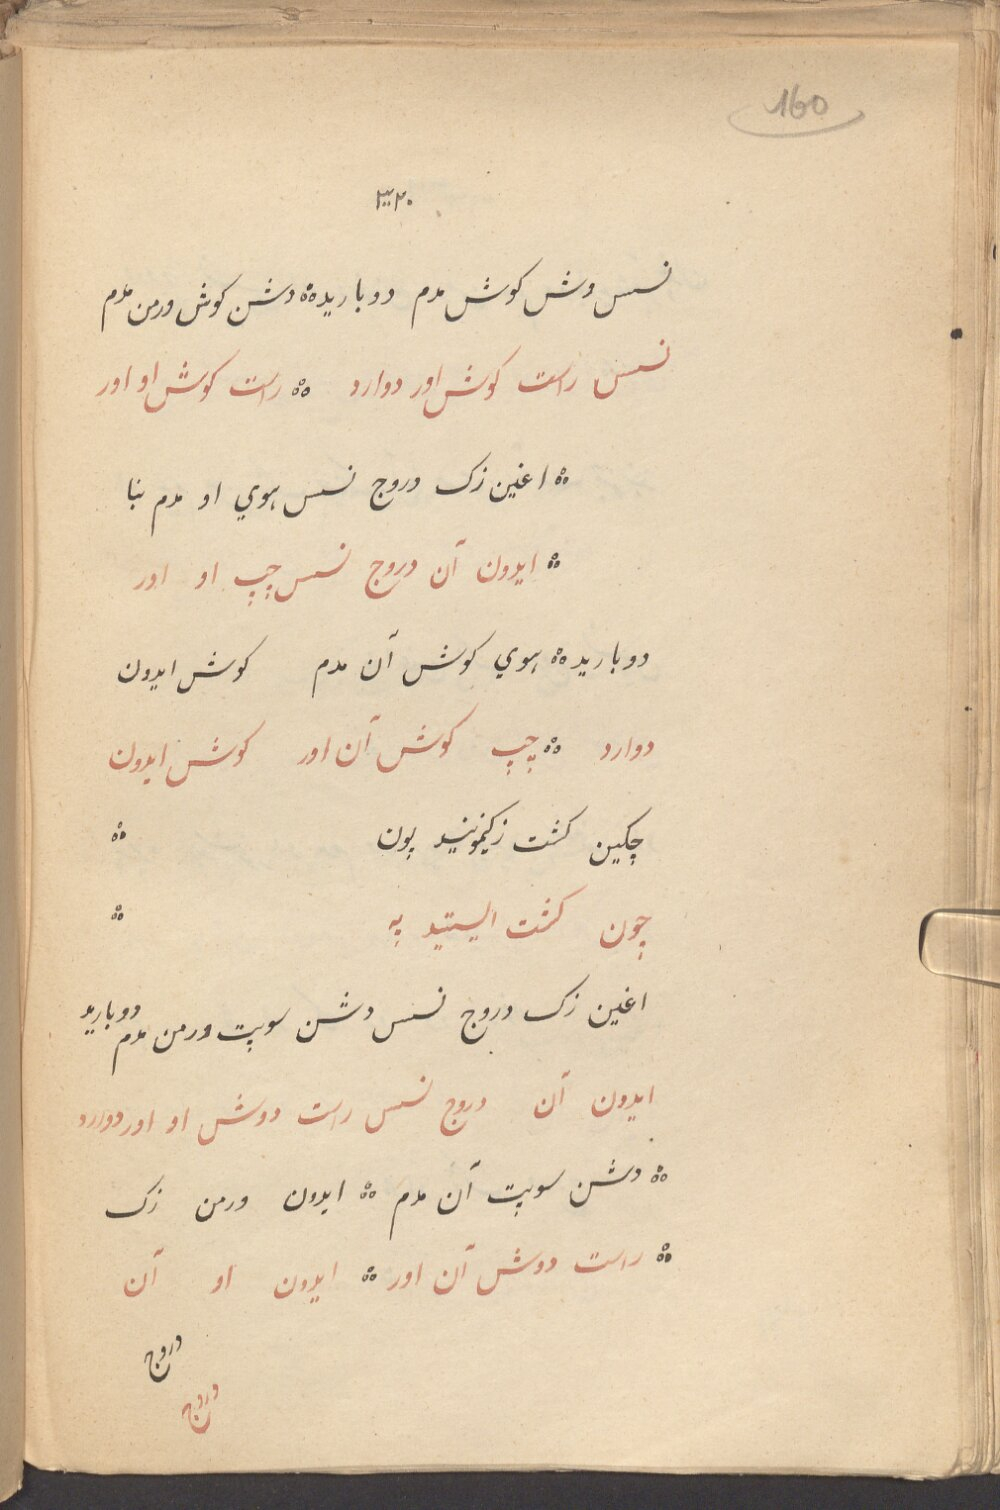 160
۳۲۰
نسس وش کوش مدم دوبارید ؞ دشن کوش ورمن مدم
نسس راست کوش اور دوارد ؞ راست کوش او اور
؞ اغین زک دروج نسس هوي او مدم
؞ ایدون آن دروج نسس چپ او اور
دوبارید ؞ هوي کوش آن مدم کوش ایدون
دوارد ؞ چپ کوش آن اور کوش ایدون
چکین کشت پون ؞
چون کشت ایستید په ؞
اغین زک دروج نسس دشن سوپت ورمن مدم دوبارید
ایدون آن دروج نسس راست دوش او اور دوارد
؞ دشن سوپت آن مدم ؞ ایدون ورمن زک
؞ راست دوش آن اور ؞ ایدون او آن
دروج
دروج